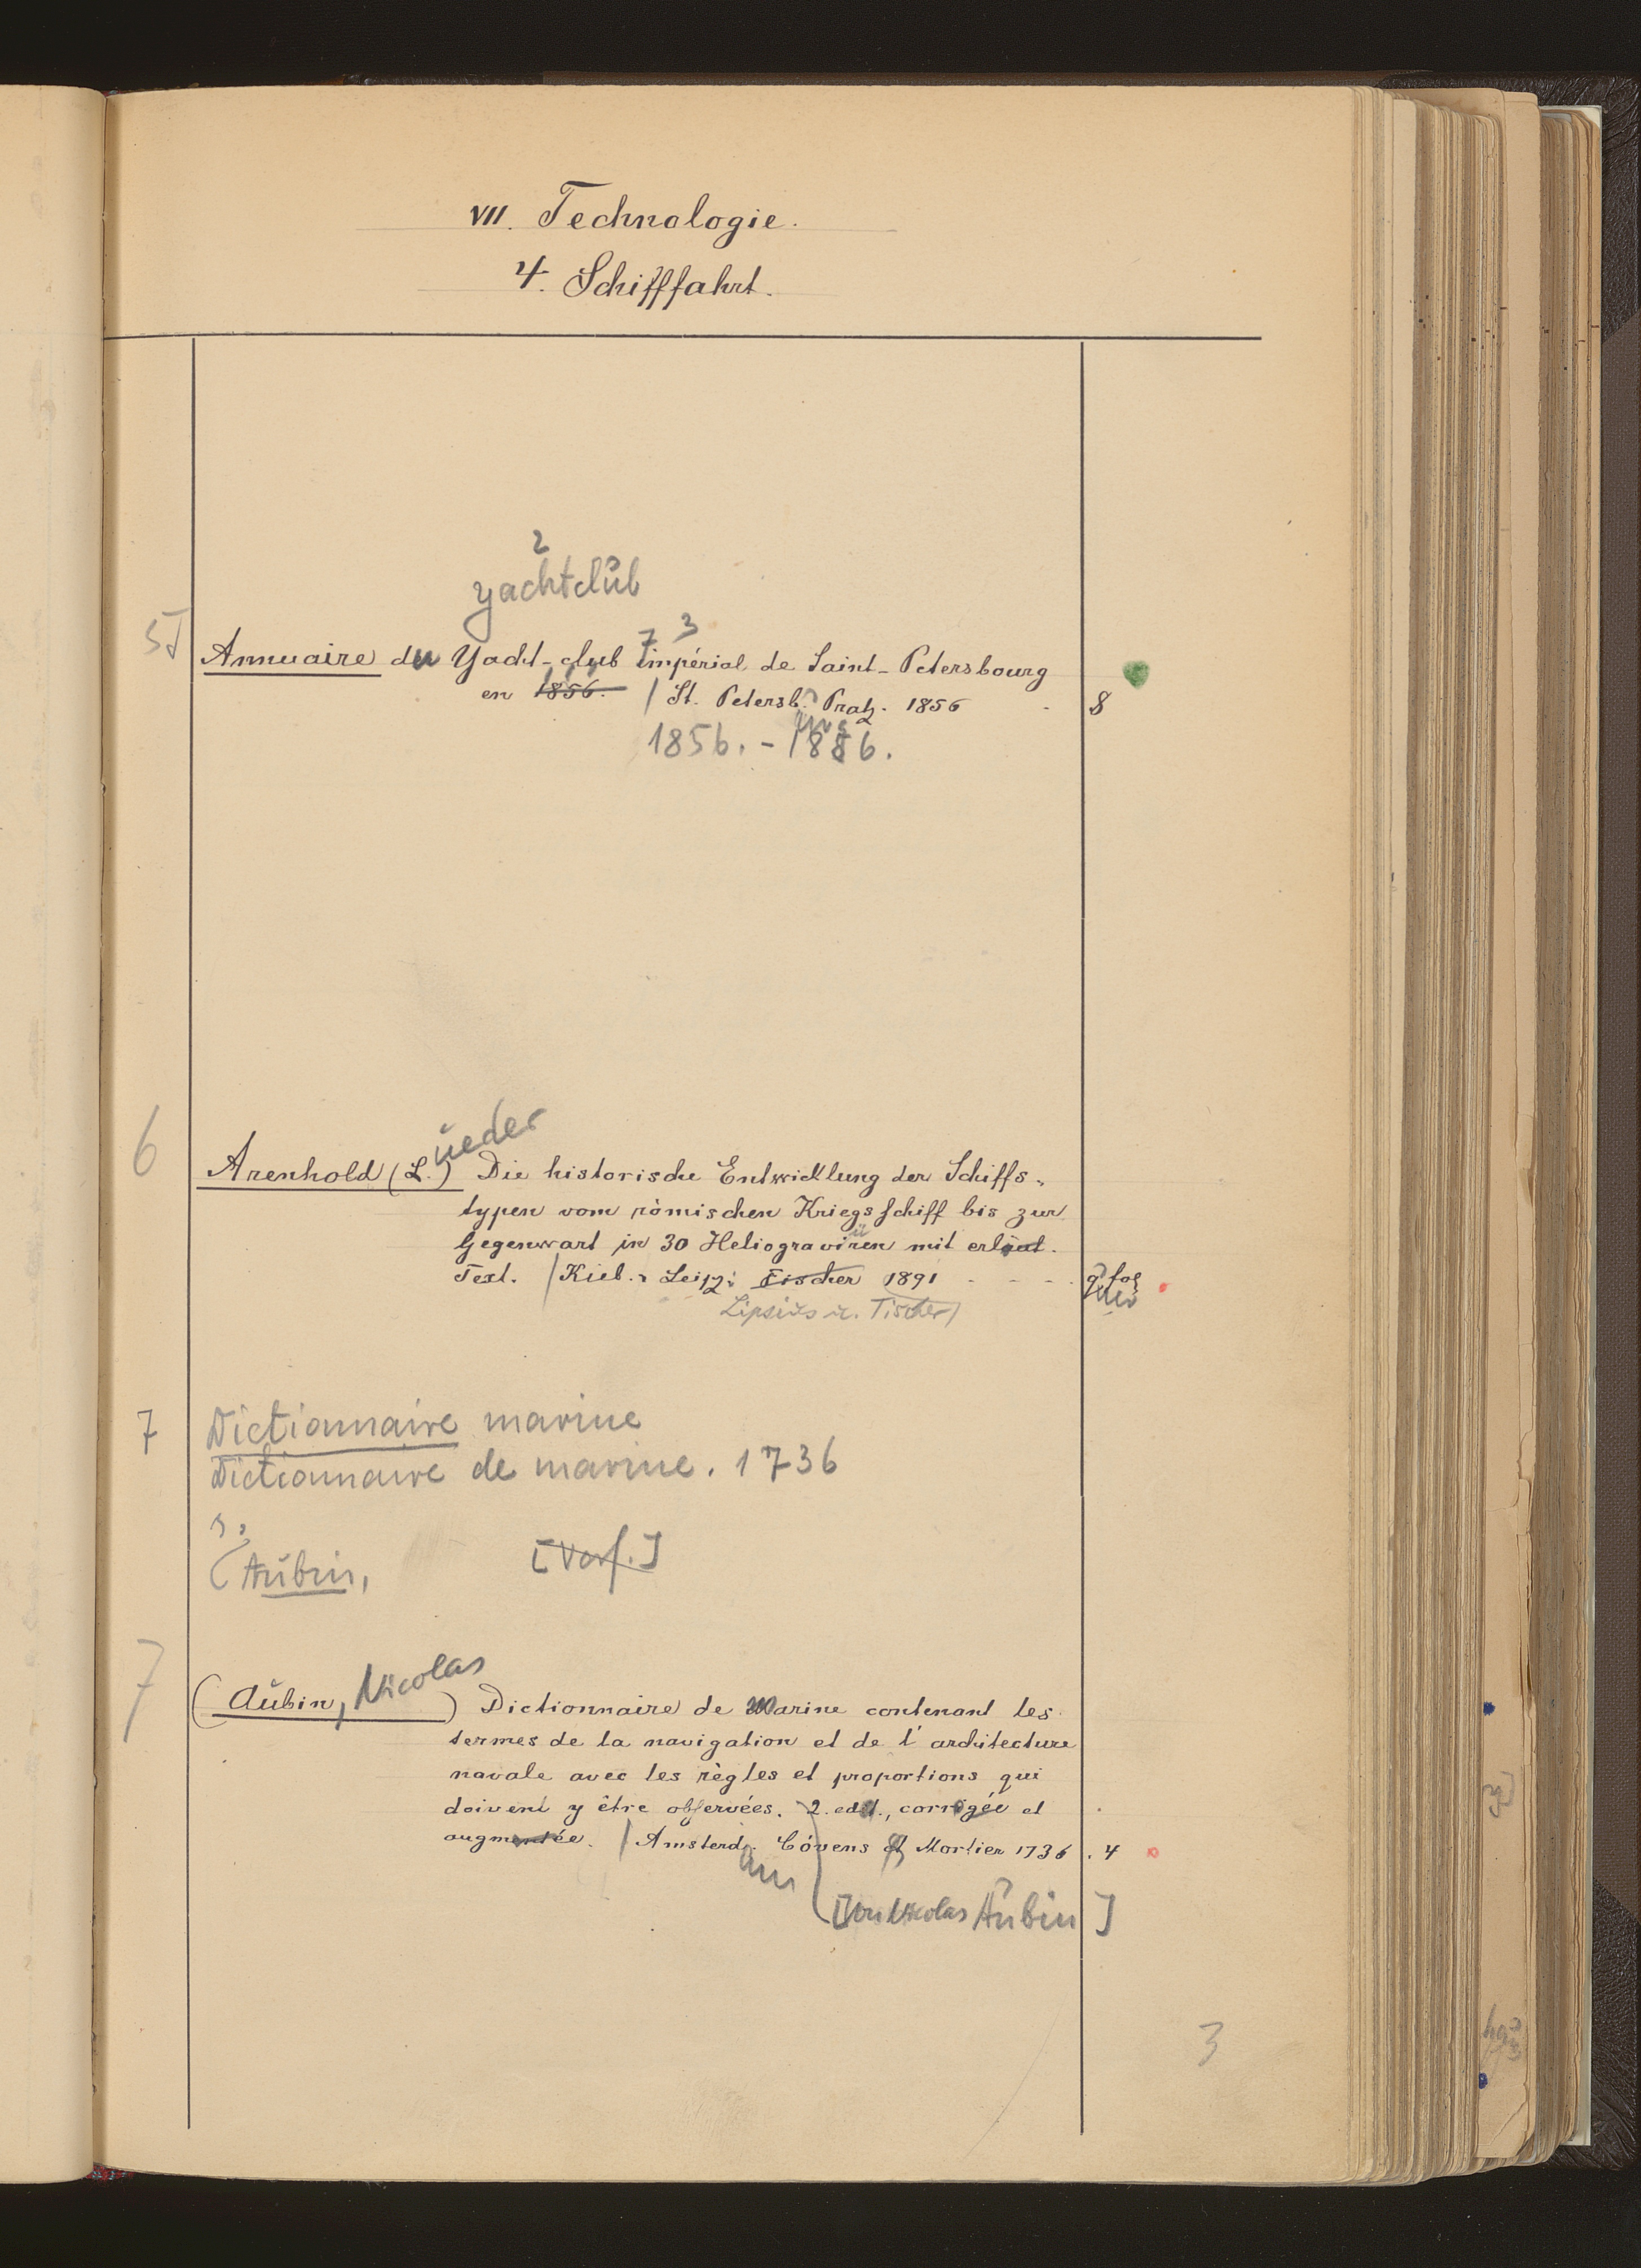 VII. Technologie.
4. Schifffahrt.
2
yachtclub
7 3
5
Annuaire du Yacht-club impérial de Saint-Petersbourg
en 1856. / St. Petersb. Pratz. 1856 8
1856. - 1886.
üeder
6
Arenhold (L.) Die historische Entwicklung der Schiffs-
typen vom römischen Kriegsschiff bis zur
Gegenwart in 30 Heliogravüren mit erläut.
Text. / Kiel. Leipz: Fischer 1891 q. fol
Lipsius u. Tischer
7 Dictionnaire marine
Dictionnaire de marine. 1736
s.
(Aubin, [Verf.]
7
(Aubin, Nicolas) Dictionnaire de Marine contenant les
termes de la navigation et de l'architecture
navale avec les règles et proportions qui
doivent y être observées. 2. edit., corrigée et
augmentée. / Amsterd. Cóvens & Mortier 1736. 4
am
[von Nicolas Aubin]
3